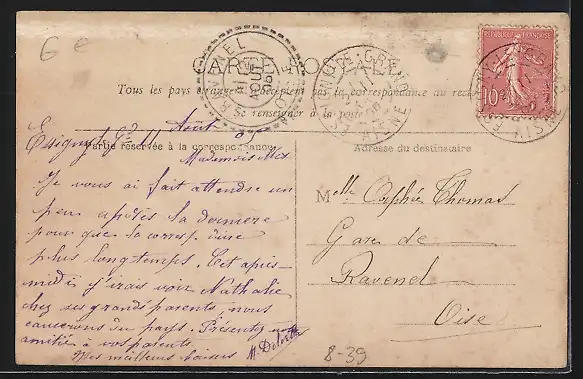 6 €
CARTE POSTALE
Tous les pays étrangers n'acceptent pas la correspondance au recto
Se renseigner à la poste
RÉPUBLIQUE FRANÇAISE
10c
RAVENEL
OISE
AOUT
ESSIGNY-LE-GRAND
AISNE
Partie réservée à la correspondance
Adresse du destinataire
Essigny Août
Mademoiselle
Je vous ai fait attendre un
peu après la dernière
pour que la corresp. dure
plus longtemps. Cet après-
midi j'irais voir Nathalie
chez ses grands parents, nous
causerons du pays. Présentez mes
amitiés à vos parents.
Mes meilleurs baisers
Melle Orphée Thomas
Gare de
Ravenel
Oise
8-39